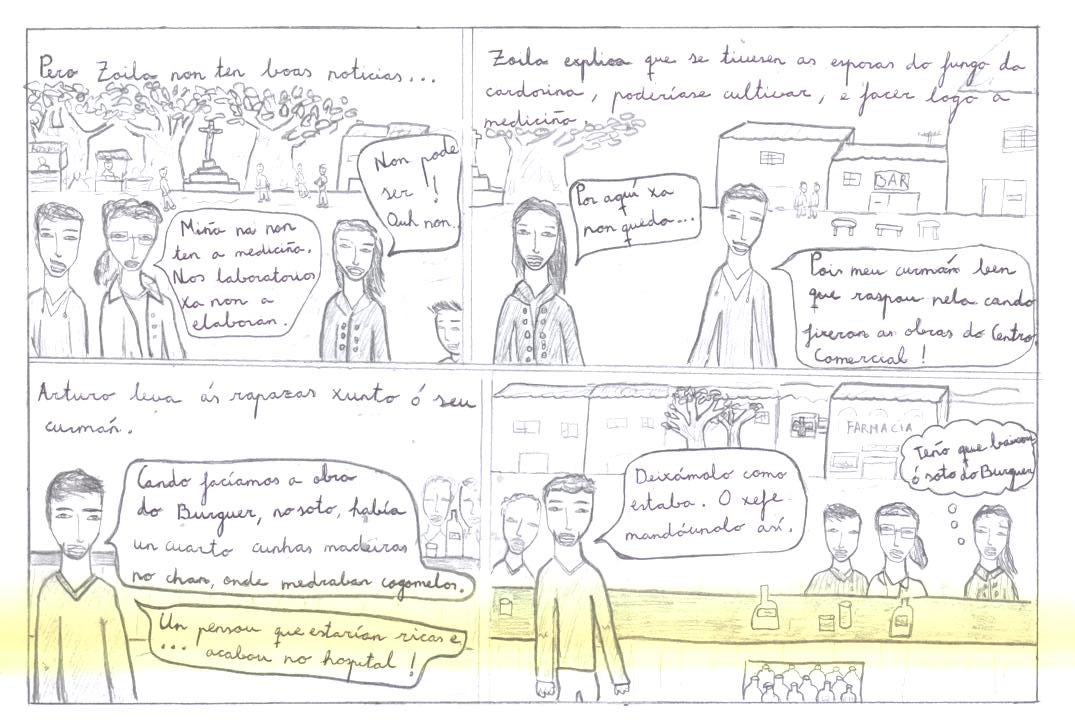 Pero Zoila non ten boas noticias...
Non pode
ser !
Ouh non..
Miña nai non
ten a mediciña.
Nos laboratorios
xa non a
elaboran.
Zoila explica que se tivesen as esporas do fungo da
cardorina, poderíase cultivar, e facer logo a
mediciña.
BAR
Por aquí xa
non queda...
Pois meu curmán ben
que raspou nela cando
fixeron as obras do Centro
Comercial !
Arturo leva ás rapazas xunto ó seu
curmán.
Cando faciamos a obra
do Burguer, no soto, había
un cuarto cunhas madeiras
no chan, onde medraban cogomelos.
Un pensou que estarían ricas e
... acabou no hospital !
FARMACIA
Teño que baixar
ó soto do Burguer
Deixámolo como
estaba. O xefe
mandóunolo así.